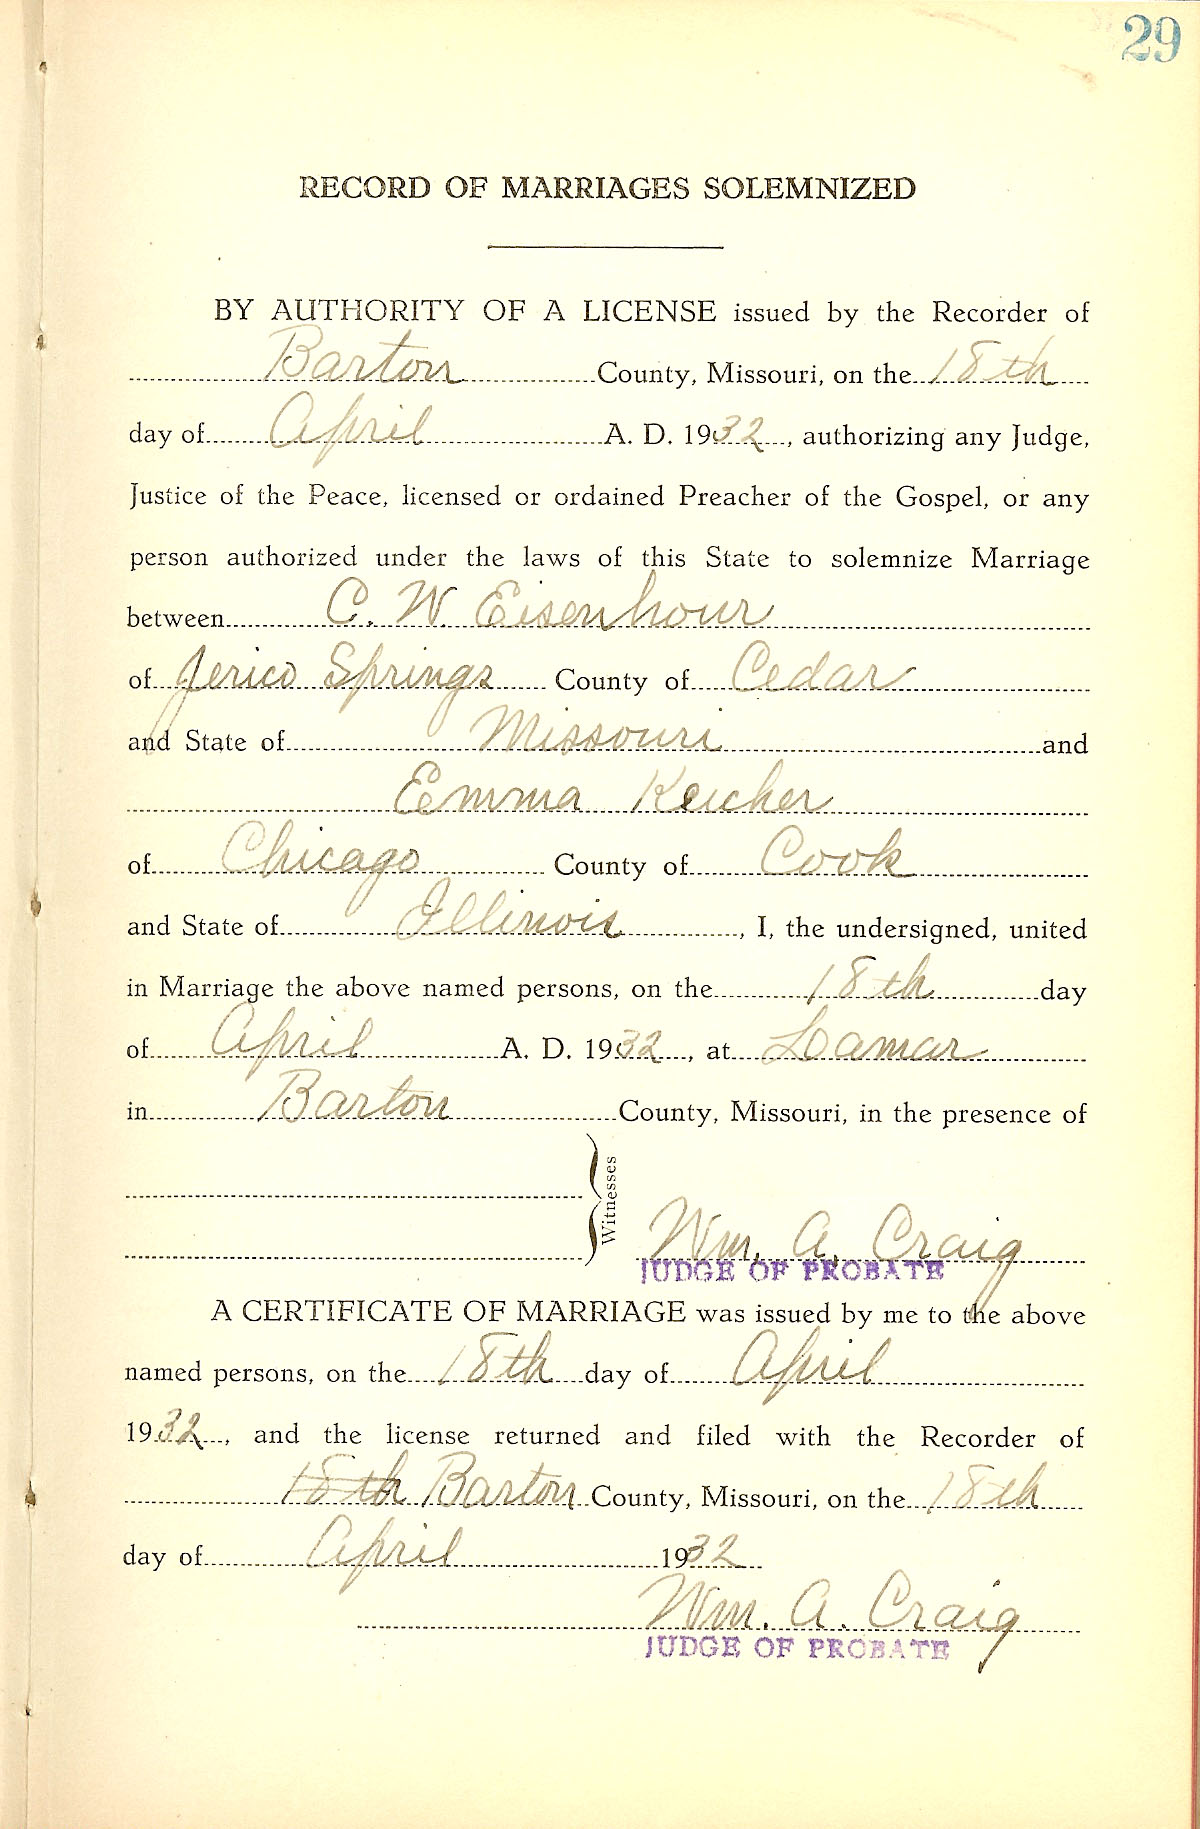 29
RECORD OF MARRIAGES SOLEMNIZED
BY AUTHORITY OF A LICENSE issued by the Recorder of
Barton County, Missouri, on the 18th
day of April A. D. 1932, authorizing any Judge,
Justice of the Peace, licensed or ordained Preacher of the Gospel, or any
person authorized under the laws of this State to solemnize Marriage
between C. W. Eisenhour
of Jerico Springs County of Cedar
and State of Missouri and
Emma Keicher
of Chicago County of Cook
and State of Illinois, I, the undersigned, united
in Marriage the above named persons, on the 18th day
of April A. D. 1932, at Lamar
in Barton County, Missouri, in the presence of
Witnesses
Wm. A. Craig
JUDGE OF PROBATE
A CERTIFICATE OF MARRIAGE was issued by me to the above
named persons, on the 18th day of April
1932, and the license returned and filed with the Recorder of
18th Barton County, Missouri, on the 18th
day of April 1932
Wm. A. Craig
JUDGE OF PROBATE